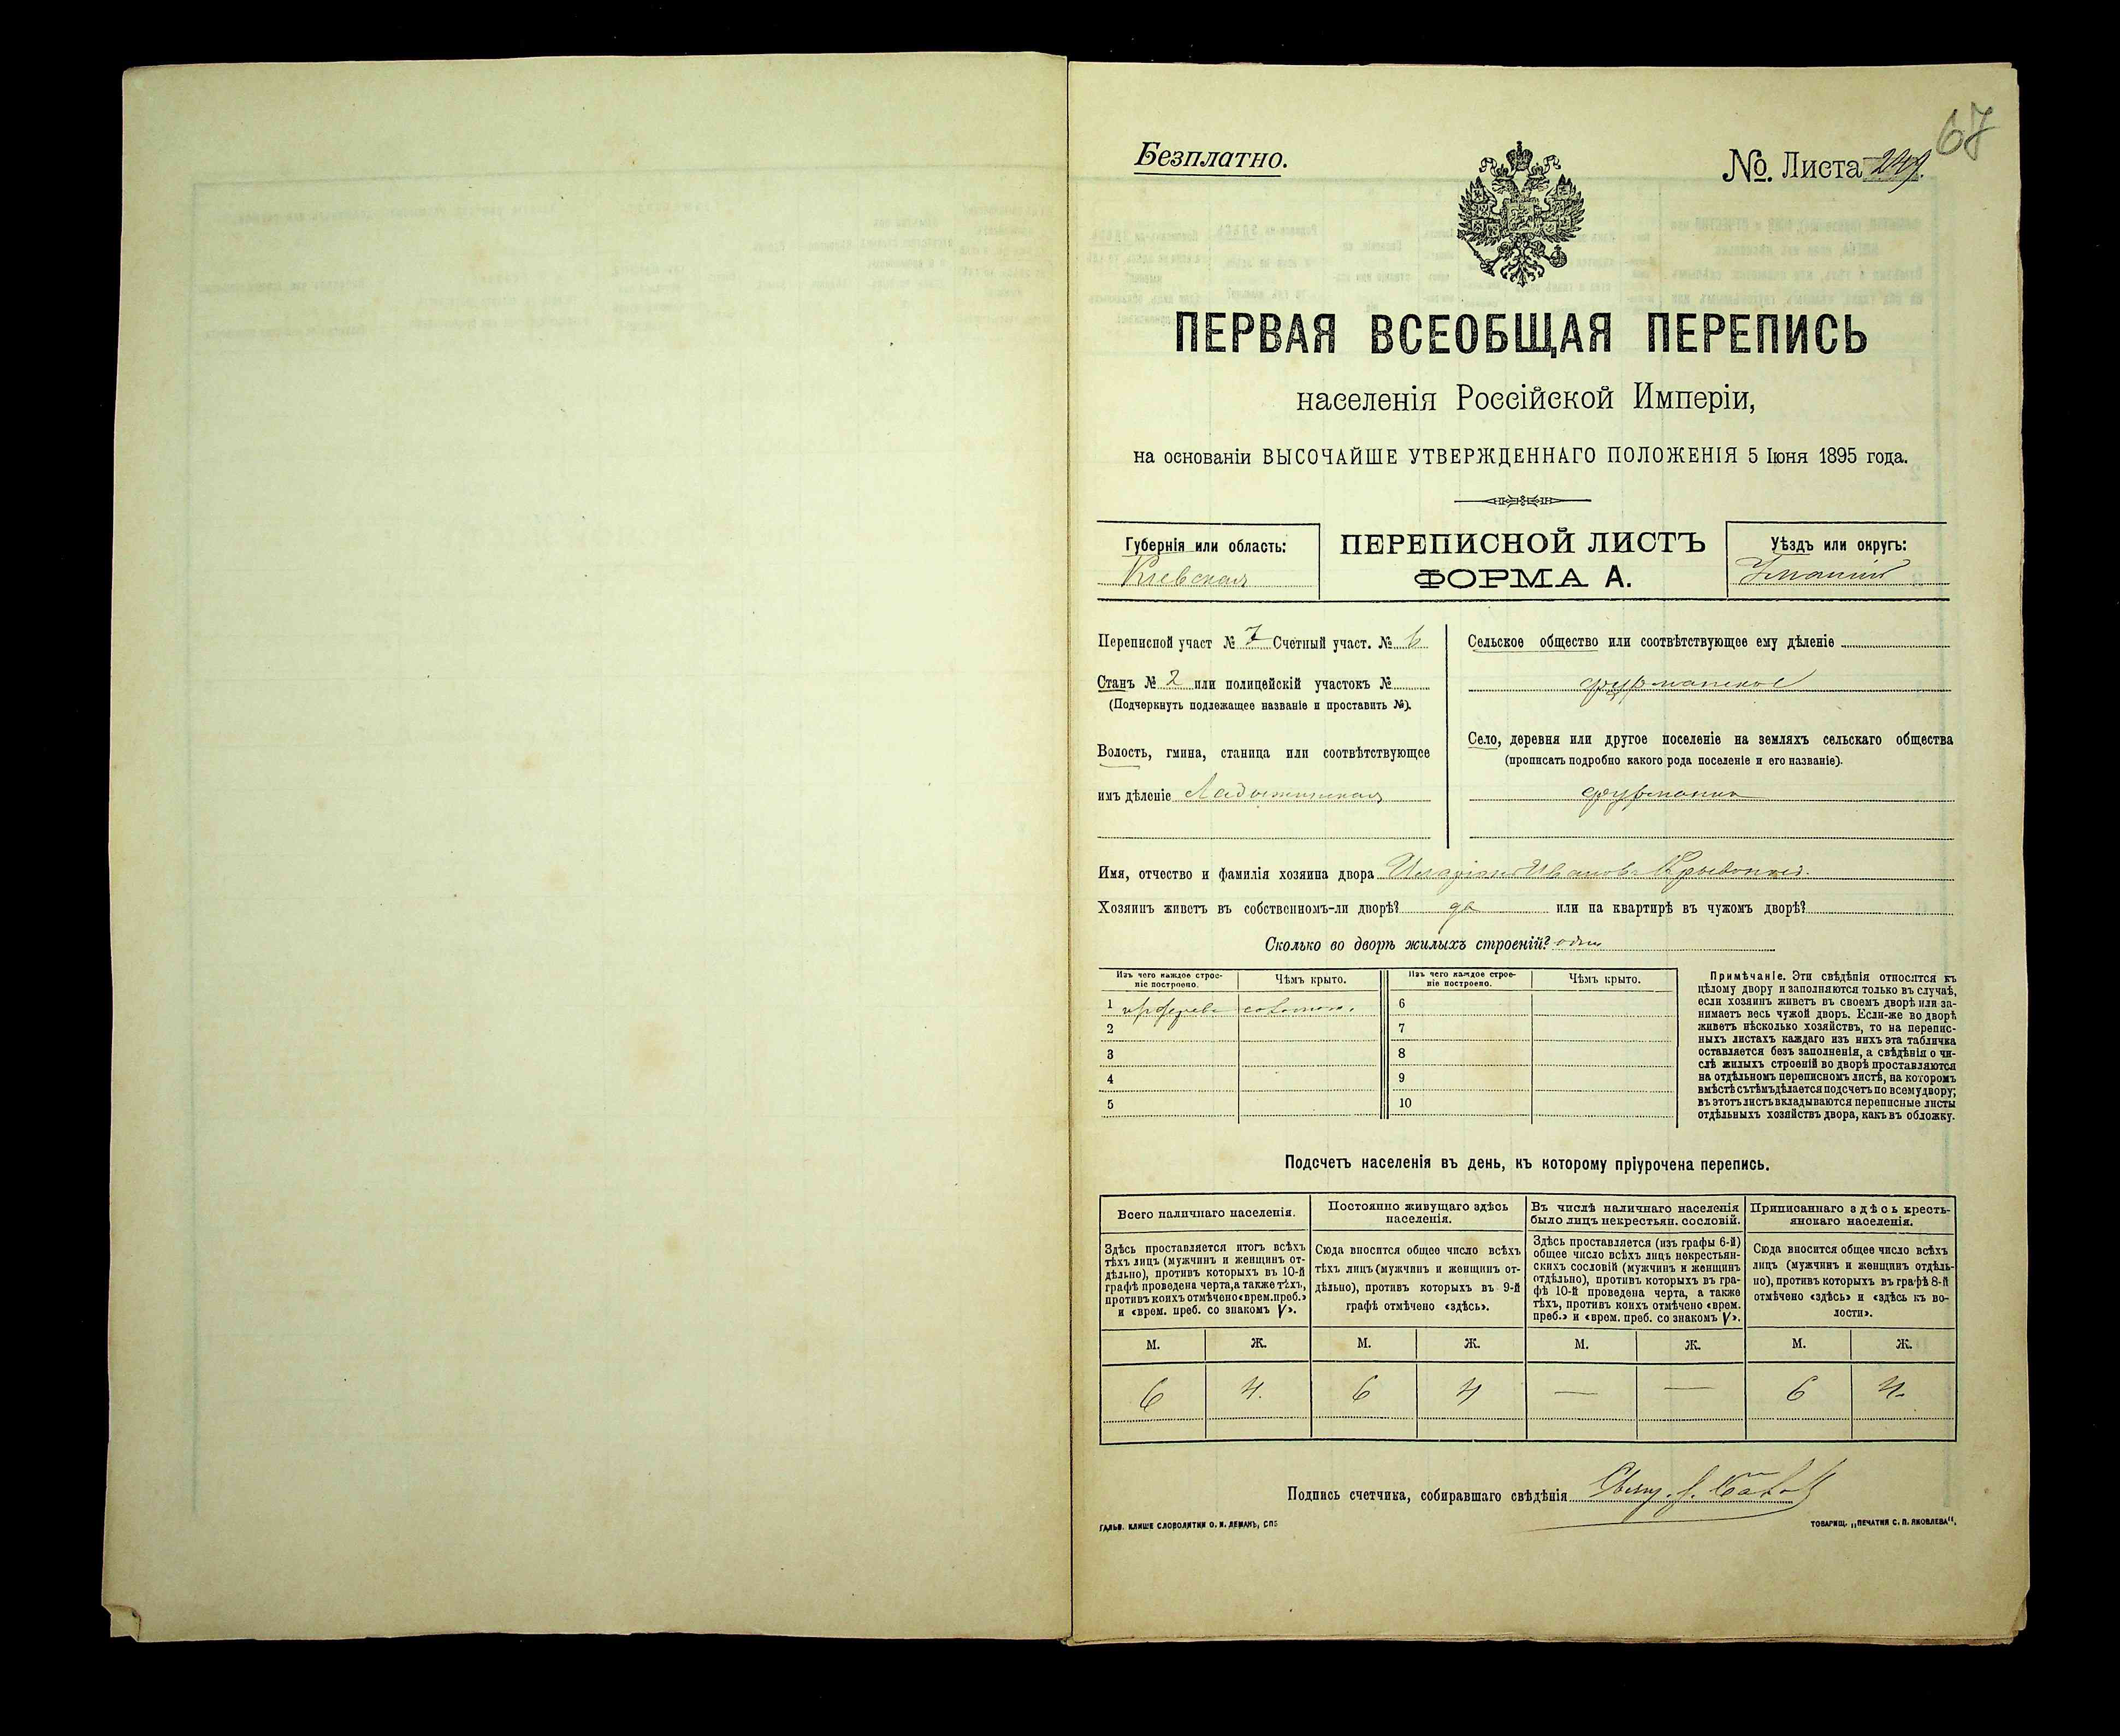 67
Безплатно.
№. Листа 249.
ПЕРВАЯ ВСЕОБЩАЯ ПЕРЕПИСЬ
населенія Россійской Имперіи,
на основаніи ВЫСОЧАЙШЕ УТВЕРЖДЕННАГО ПОЛОЖЕНІЯ 5 Іюня 1895 года.
Губернія или область:
Кіевская
ПЕРЕПИСНОЙ ЛИСТЪ
ФОРМА А.
Уѣздъ или округъ:
Переписной участ № 7 Счетный участ. № 6
Станъ № 2 или полицейскій участокъ №
(Подчеркнуть подлежащее названіе и проставить №).
Волость, гмина, станица или соотвѣтствующее
имъ дѣленіе Ладыжинская
Сельское общество или соотвѣтствующее ему дѣленіе
фурманское
Село, деревня или другое поселеніе на земляхъ сельскаго общества
(прописать подробно какого рода поселеніе и его названіе).
фурманка
Имя, отчество и фамилія хозяина двора Иларіонъ Ивановъ
Хозяинъ живетъ въ собственномъ-ли дворѣ? да или на квартирѣ въ чужомъ дворѣ?
Сколько во дворѣ жилыхъ строеній? одно
Изъ чего каждое строе-
ніе построено.
Чѣмъ крыто.
Изъ чего каждое строе-
ніе построено.
Чѣмъ крыто.
1 соломою. 6
2 7
3 8
4 9
5 10
Примѣчаніе. Эти свѣдѣнія относятся къ
цѣлому двору и заполняются только въ случаѣ,
если хозяинъ живетъ въ своемъ дворѣ или за-
нимаетъ весь чужой дворъ. Если-же во дворѣ
живетъ нѣсколько хозяйствъ, то на перепис-
ныхъ листахъ каждаго изъ нихъ эта табличка
оставляется безъ заполненія, а свѣдѣнія о чи-
слѣ жилыхъ строеній во дворѣ проставляются
на отдѣльномъ переписномъ листѣ, на которомъ
вмѣстѣ съ тѣмъ дѣлается подсчетъ по всему двору;
въ этотъ листъ вкладываются переписные листы
отдѣльныхъ хозяйствъ двора, какъ въ обложку.
Подсчетъ населенія въ день, къ которому пріурочена перепись.
Всего наличнаго населенія.
Здѣсь проставляется итогъ всѣхъ
тѣхъ лицъ (мужчинъ и женщинъ от-
дѣльно), противъ которыхъ въ 10-й
графѣ проведена черта, а также тѣхъ,
противъ коихъ отмѣчено «врем. преб.»
и «врем. преб. со знакомъ V».
Постоянно живущаго здѣсь
населенія.
Сюда вносится общее число всѣхъ
тѣхъ лицъ (мужчинъ и женщинъ от-
дѣльно), противъ которыхъ въ 9-й
графѣ отмѣчено «здѣсь».
Въ числѣ наличнаго населенія
было лицъ некрестьян. сословій.
Здѣсь проставляется (изъ графы 6-й)
общее число всѣхъ лицъ некрестьян-
скихъ сословій (мужчинъ и женщинъ
отдѣльно), противъ которыхъ въ гра-
фѣ 10-й проведена черта, а также
тѣхъ, противъ коихъ отмѣчено «врем.
преб.» и «врем. преб. со знакомъ V».
Приписаннаго здѣсь кресть-
янскаго населенія.
Сюда вносится общее число всѣхъ
лицъ (мужчинъ и женщинъ отдѣль-
но), противъ которыхъ въ графѣ 8-й
отмѣчено «здѣсь» и «здѣсь къ во-
лости».
М. Ж. М. Ж. М. Ж. М. Ж.
6 4. 6 4 — — 6 4.
Подпись счетчика, собиравшаго свѣдѣнія
ГАЛЬВ. КЛИШЕ СЛОВОЛИТНИ О. И. ЛЕМАНЪ, СПБ
ТОВАРИЩ. „ПЕЧАТНЯ С. П. ЯКОВЛЕВА“.